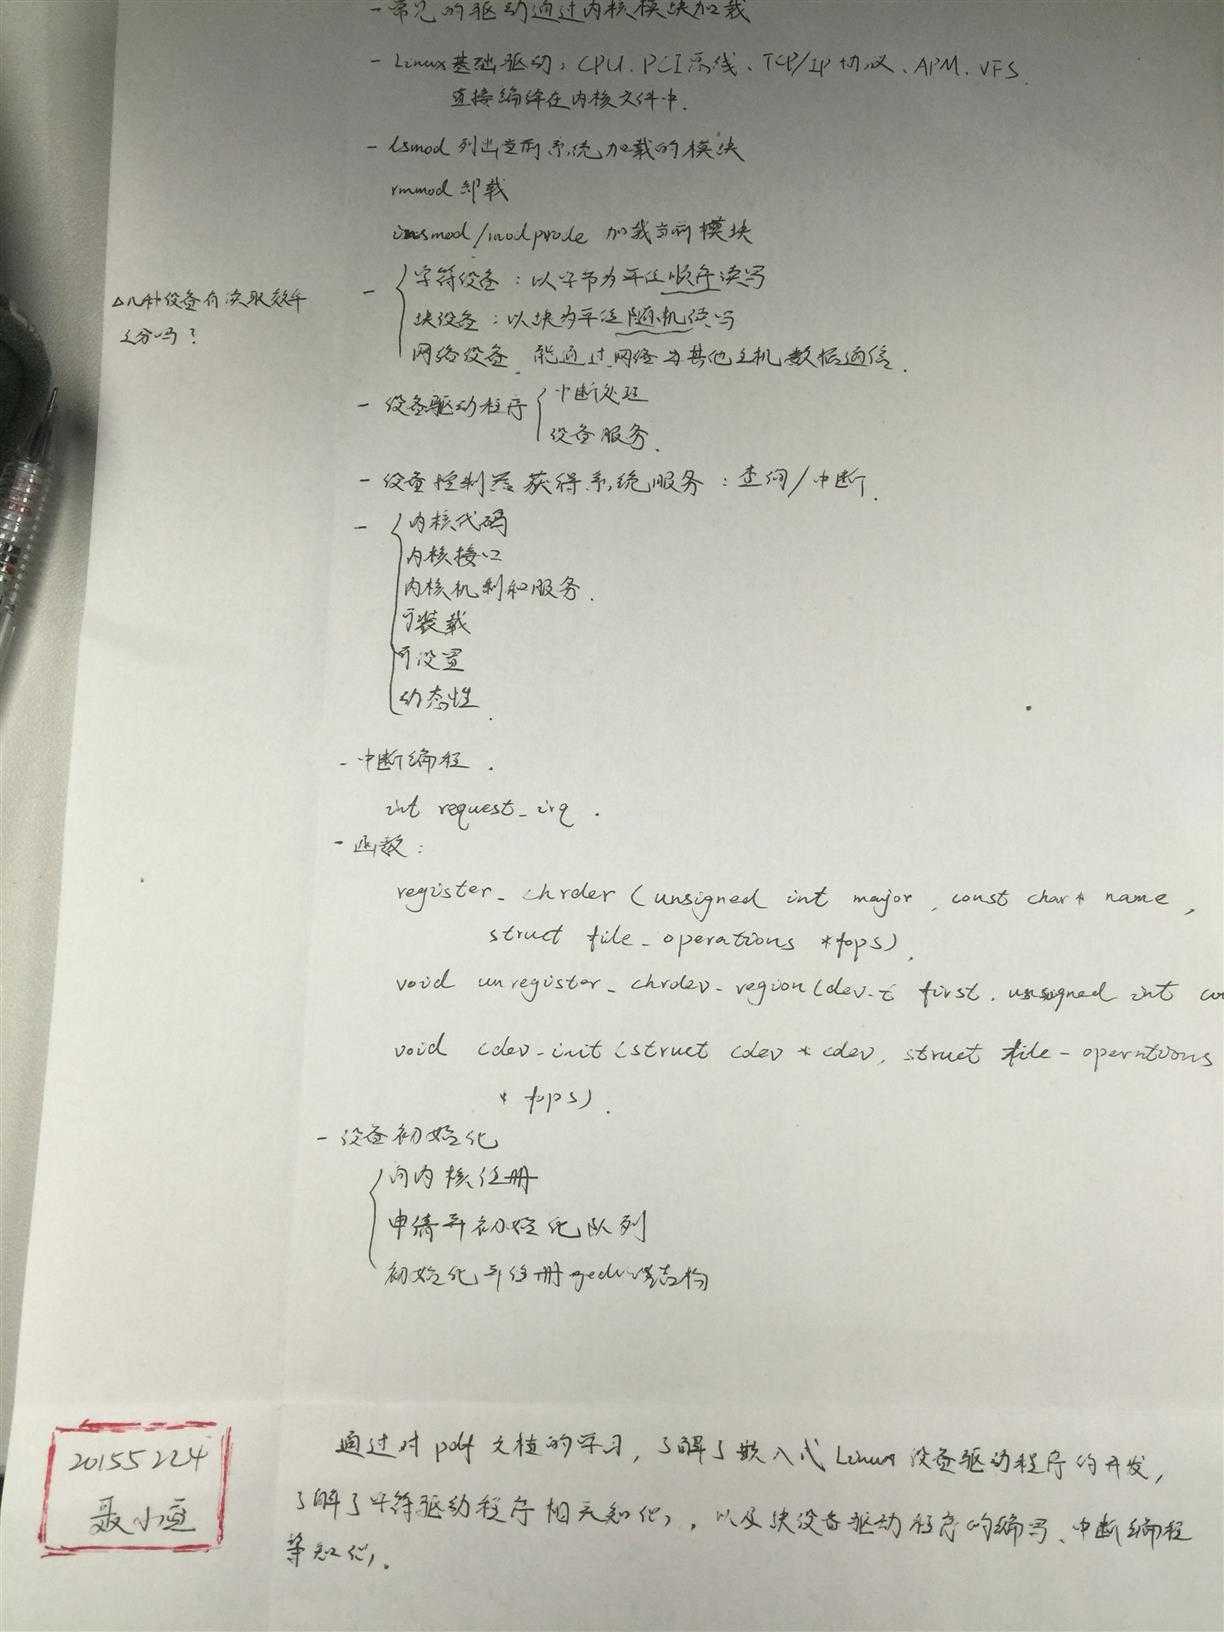 - 常见的驱动通过内核模块加载
- Linux基础驱动：CPU、PCI总线、TCP/IP协议、APM、VFS
直接编译在内核文件中.
- lsmod 列出当前系统加载的模块
rmmod 卸载
insmod/modprobe 加载当前模块
△几种设备有读取效率
之分吗？
- 字符设备：以字节为单位顺序读写
块设备：以块为单位随机读写
网络设备 能通过网络与其他主机数据通信.
- 设备驱动程序
中断处理
设备服务.
- 设备控制器获得系统服务：查询/中断.
- 内核代码
内核接口
内核机制和服务.
可装载
可设置
动态性.
- 中断编程.
int request_irq.
- 函数：
register_chrder (unsigned int major, const char* name,
struct file_operations *fops).
void unregister_chrdev_region(dev_t first, unsigned int cou
void cdev_init (struct cdev * cdev, struct file_operations
* fops).
- 设备初始化
向内核注册
申请并初始化队列
初始化并注册 结构
通过对pdf文档的学习，了解了嵌入式Linux设备驱动程序的开发，
了解了字符驱动程序相关知识，以及块设备驱动程序的编写、中断编程
等知识.
20155224
聂小益